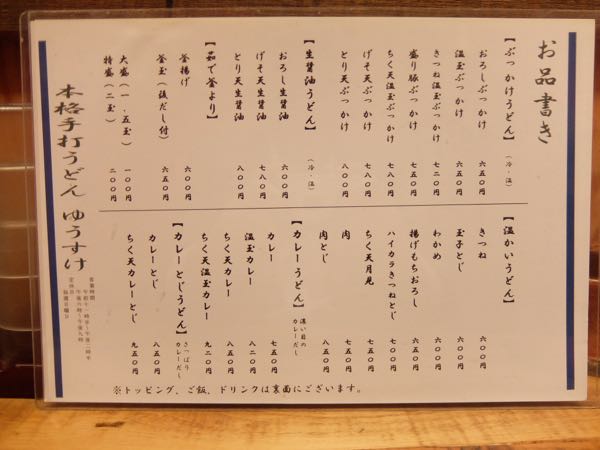 お品書き
【ぶっかけうどん】（冷・温）
おろしぶっかけ 六五〇円
温玉ぶっかけ 六五〇円
きつね温玉ぶっかけ 七二〇円
盛り豚ぶっかけ 七五〇円
ちく天温玉ぶっかけ 七八〇円
げそ天ぶっかけ 七八〇円
とり天ぶっかけ 八〇〇円
【生醤油うどん】（冷・温）
おろし生醤油 六〇〇円
げそ天生醤油 七八〇円
とり天生醤油 八〇〇円
【茹で釜より】
釜揚げ 六〇〇円
釜玉（後だし付） 六五〇円
大盛（一、五玉） 一〇〇円
特盛（二玉） 二〇〇円
【温かいうどん】
きつね 六〇〇円
玉子とじ 六〇〇円
わかめ 六〇〇円
揚げもちおろし 六五〇円
ハイカラきつねとじ 七〇〇円
ちく天月見 七五〇円
肉 七五〇円
肉とじ 八五〇円
【カレーうどん】濃い目のカレーだし
カレー 七五〇円
温玉カレー 八二〇円
ちく天カレー 八五〇円
ちく天温玉カレー 九二〇円
【カレーとじうどん】さっぱりカレーだし
カレーとじ 八五〇円
ちく天カレーとじ 九五〇円
※トッピング、ご飯、ドリンクは裏面にございます。
本格手打うどん ゆうすけ
営業時間 午前十一時半～午後二時半
午後六時～午後九時
定休日 毎週日曜日